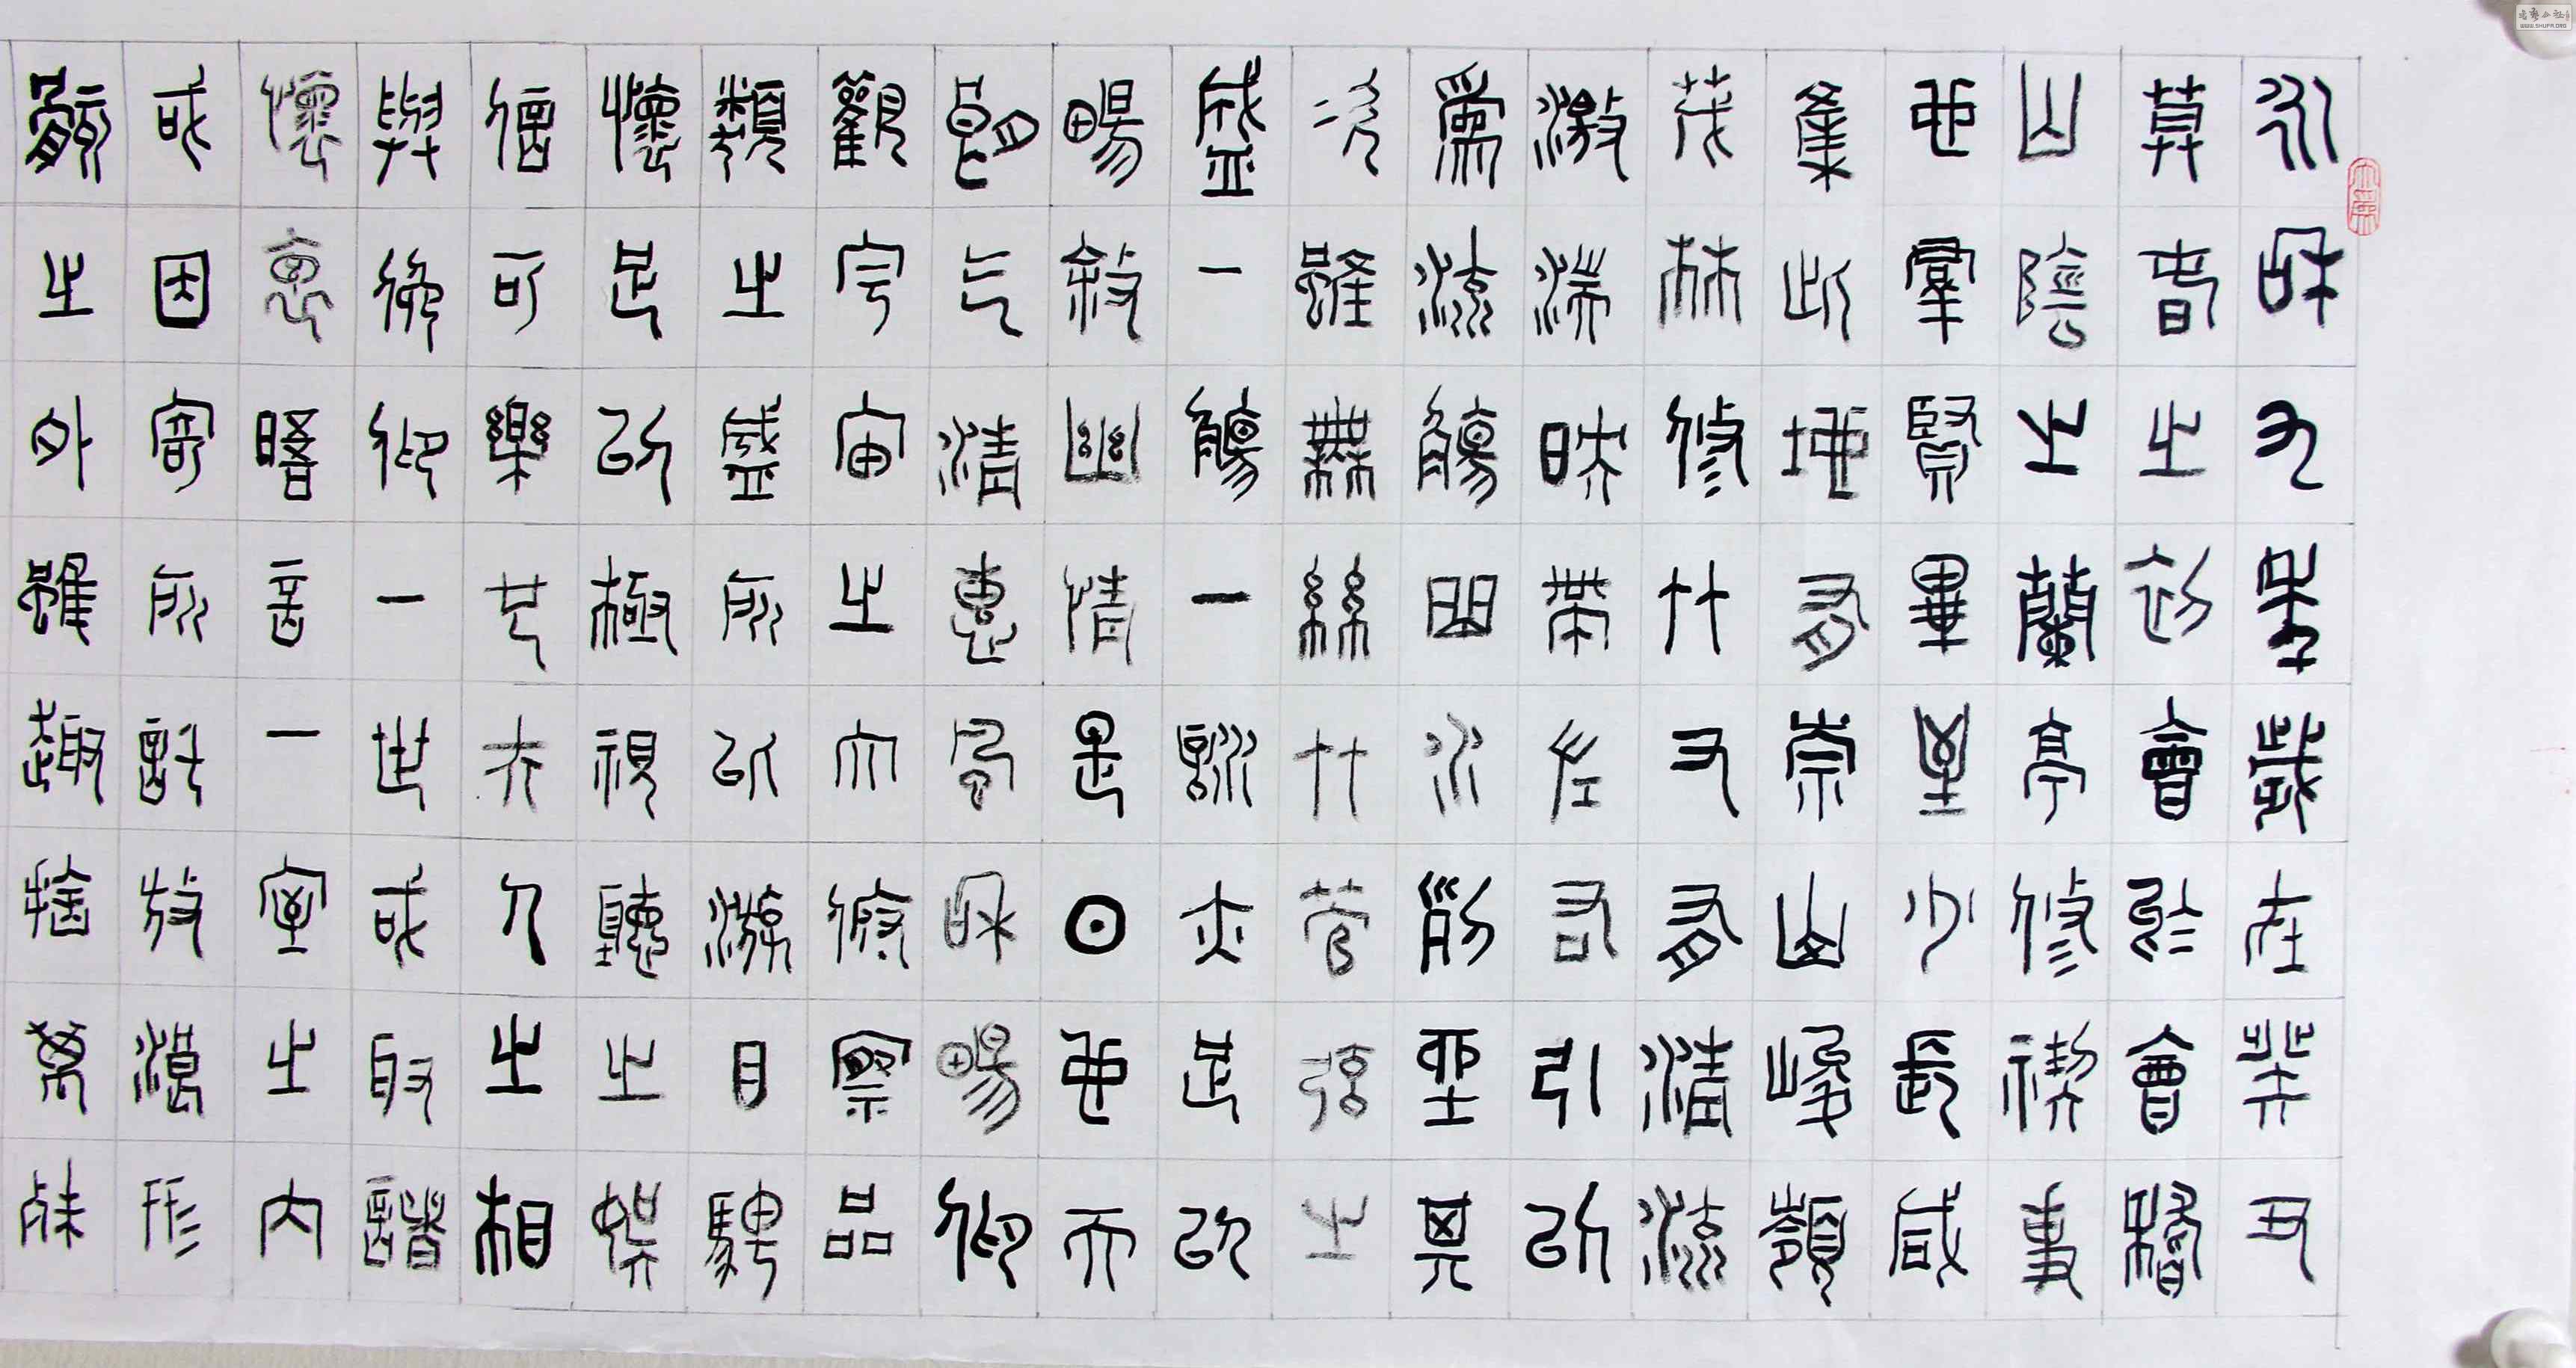 永和九年歲在癸丑
莫春之初會於會稽
山陰之蘭亭修禊事
也羣賢畢至少長咸
集此地有崇山峻嶺
茂林修竹又有清流
激湍映帶左右引以
為流觴曲水列坐其
次雖無絲竹管弦之
盛一觴一詠亦足以
暢敘幽情是日也天
朗气清惠風和暢仰
觀宇宙之大俯察品
類之盛所以游目騁
懷足以極視聽之娛
信可樂也夫人之相
與俯仰一世或取諸
懷抱晤言一室之內
或因寄所託放浪形
骸之外雖趣捨萬殊